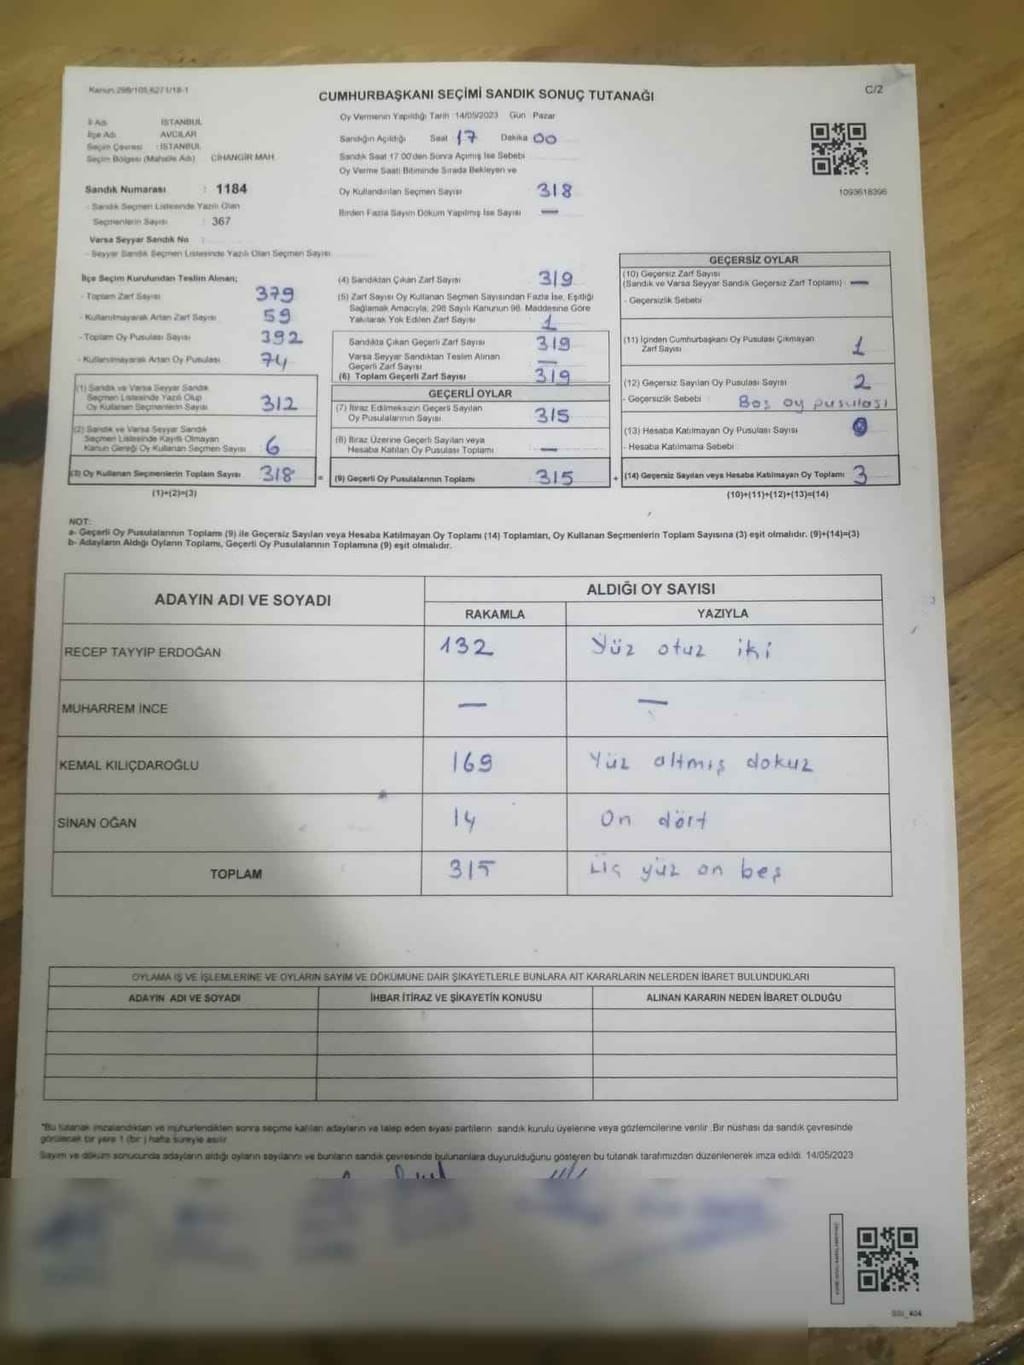 Kanun 298/105,6271/18-1
C/2
CUMHURBAŞKANI SEÇİMİ SANDIK SONUÇ TUTANAĞI
İl Adı İSTANBUL
İlçe Adı AVCILAR
Seçim Çevresi : İSTANBUL
Seçim Bölgesi (Mahalle Adı) CİHANGİR MAH.
Sandık Numarası : 1184
- Sandık Seçmen Listesinde Yazılı Olan
Seçmenlerin Sayısı : 367
Varsa Seyyar Sandık No :
- Seyyar Sandık Seçmen Listesinde Yazılı Olan Seçmen Sayısı
Oy Vermenin Yapıldığı Tarih 14/05/2023 Gün Pazar
Sandığın Açıldığı Saat 17 Dakika 00
Sandık Saat 17:00'den Sonra Açılmış İse Sebebi
Oy Verme Saati Bitiminde Sırada Bekleyen ve
Oy Kullandırılan Seçmen Sayısı 318
Birden Fazla Sayım Döküm Yapılmış İse Sayısı —
1093618396
İlçe Seçim Kurulundan Teslim Alınan;
- Toplam Zarf Sayısı 379
- Kullanılmayarak Artan Zarf Sayısı 59
- Toplam Oy Pusulası Sayısı 392
- Kullanılmayarak Artan Oy Pusulası 74
(1) Sandık ve Varsa Seyyar Sandık
Seçmen Listesinde Yazılı Olup
Oy Kullanan Seçmenlerin Sayısı 312
(2) Sandık ve Varsa Seyyar Sandık
Seçmen Listesinde Kayıtlı Olmayan
Kanun Gereği Oy Kullanan Seçmen Sayısı 6
(3) Oy Kullanan Seçmenlerin Toplam Sayısı 318
(1)+(2)=(3)
(4) Sandıktan Çıkan Zarf Sayısı 319
(5) Zarf Sayısı Oy Kullanan Seçmen Sayısından Fazla İse, Eşitliği
Sağlamak Amacıyla, 298 Sayılı Kanunun 98. Maddesine Göre
Yakılarak Yok Edilen Zarf Sayısı 1
Sandıkta Çıkan Geçerli Zarf Sayısı 319
Varsa Seyyar Sandıktan Teslim Alınan
Geçerli Zarf Sayısı —
(6) Toplam Geçerli Zarf Sayısı 319
GEÇERLİ OYLAR
(7) İtiraz Edilmeksizin Geçerli Sayılan
Oy Pusulalarının Sayısı 315
(8) İtiraz Üzerine Geçerli Sayılan veya
Hesaba Katılan Oy Pusulası Toplamı —
= (9) Geçerli Oy Pusulalarının Toplamı 315
GEÇERSİZ OYLAR
(10) Geçersiz Zarf Sayısı
(Sandık ve Varsa Seyyar Sandık Geçersiz Zarf Toplamı) —
- Geçersizlik Sebebi
(11) İçinden Cumhurbaşkanı Oy Pusulası Çıkmayan
Zarf Sayısı 1
(12) Geçersiz Sayılan Oy Pusulası Sayısı 2
- Geçersizlik Sebebi Boş oy pusulası
(13) Hesaba Katılmayan Oy Pusulası Sayısı 0
- Hesaba Katılmama Sebebi
+ (14) Geçersiz Sayılan veya Hesaba Katılmayan Oy Toplamı 3
(10)+(11)+(12)+(13)=(14)
NOT:
a- Geçerli Oy Pusulalarının Toplamı (9) ile Geçersiz Sayılan veya Hesaba Katılmayan Oy Toplamı (14) Toplamları, Oy Kullanan Seçmenlerin Toplam Sayısına (3) eşit olmalıdır. (9)+(14)=(3)
b- Adayların Aldığı Oyların Toplamı, Geçerli Oy Pusulalarının Toplamına (9) eşit olmalıdır.
ADAYIN ADI VE SOYADI
ALDIĞI OY SAYISI
RAKAMLA YAZIYLA
RECEP TAYYIP ERDOĞAN 132 Yüz otuz iki
MUHARREM İNCE — —
KEMAL KILIÇDAROĞLU 169 Yüz altmış dokuz
SİNAN OĞAN 14 On dört
TOPLAM 315 Üç yüz on beş
OYLAMA İŞ VE İŞLEMLERİNE VE OYLARIN SAYIM VE DÖKÜMÜNE DAİR ŞİKAYETLERLE BUNLARA AİT KARARLARIN NELERDEN İBARET BULUNDUKLARI
ADAYIN ADI VE SOYADI İHBAR İTİRAZ VE ŞİKAYETİN KONUSU ALINAN KARARIN NEDEN İBARET OLDUĞU
*Bu tutanak imzalandıktan ve mühürlendikten sonra seçime katılan adayların ve talep eden siyasi partilerin sandık kurulu üyelerine veya gözlemcilerine verilir. Bir nüshası da sandık çevresinde
görülecek bir yere 1 (bir ) hafta süreyle asılır
Sayım ve döküm sonucunda adayların aldığı oyların sayılarını ve bunların sandık çevresinde bulunanlara duyurulduğunu gösteren bu tutanak tarafımızdan düzenlenerek imza edildi. 14/05/2023